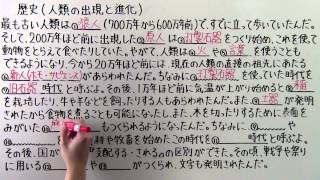 歴史(人類の出現と進化)
最も古い人類は①猿人(700万年から600万年前)で、すでに立って歩いていた。
そして、200万年ほど前に出現した②原人は③打製石器をつくり始め、これを使って
動物をとらえて食べたりしていた。やがて、人類は④火や⑤言葉を使うことも
できるようになり、今から20万年ほど前には、現在の人類の直接の祖先にあたる
新人(ホモ・サピエンス)があらわれた。ちなみに打製石器を使っていた時代を
旧石器時代と呼ぶよ。その後、1万年ほど前に気温が上がり始めると
を栽培したり、牛や羊などを飼ったりする人もあらわれた。また、土器が発明
されたから食物を煮ることも可能になった。しかも、表面をみ
がいた もつくられるようになったんだ。ちなみに や
耕や牧畜を始めたこの時代を 時代と呼ぶよ。
その後、国が 支配する・されるの区別ができた。その頃、戦争や祭り
に用いる や がつくられ、文字も発明されたんだ。